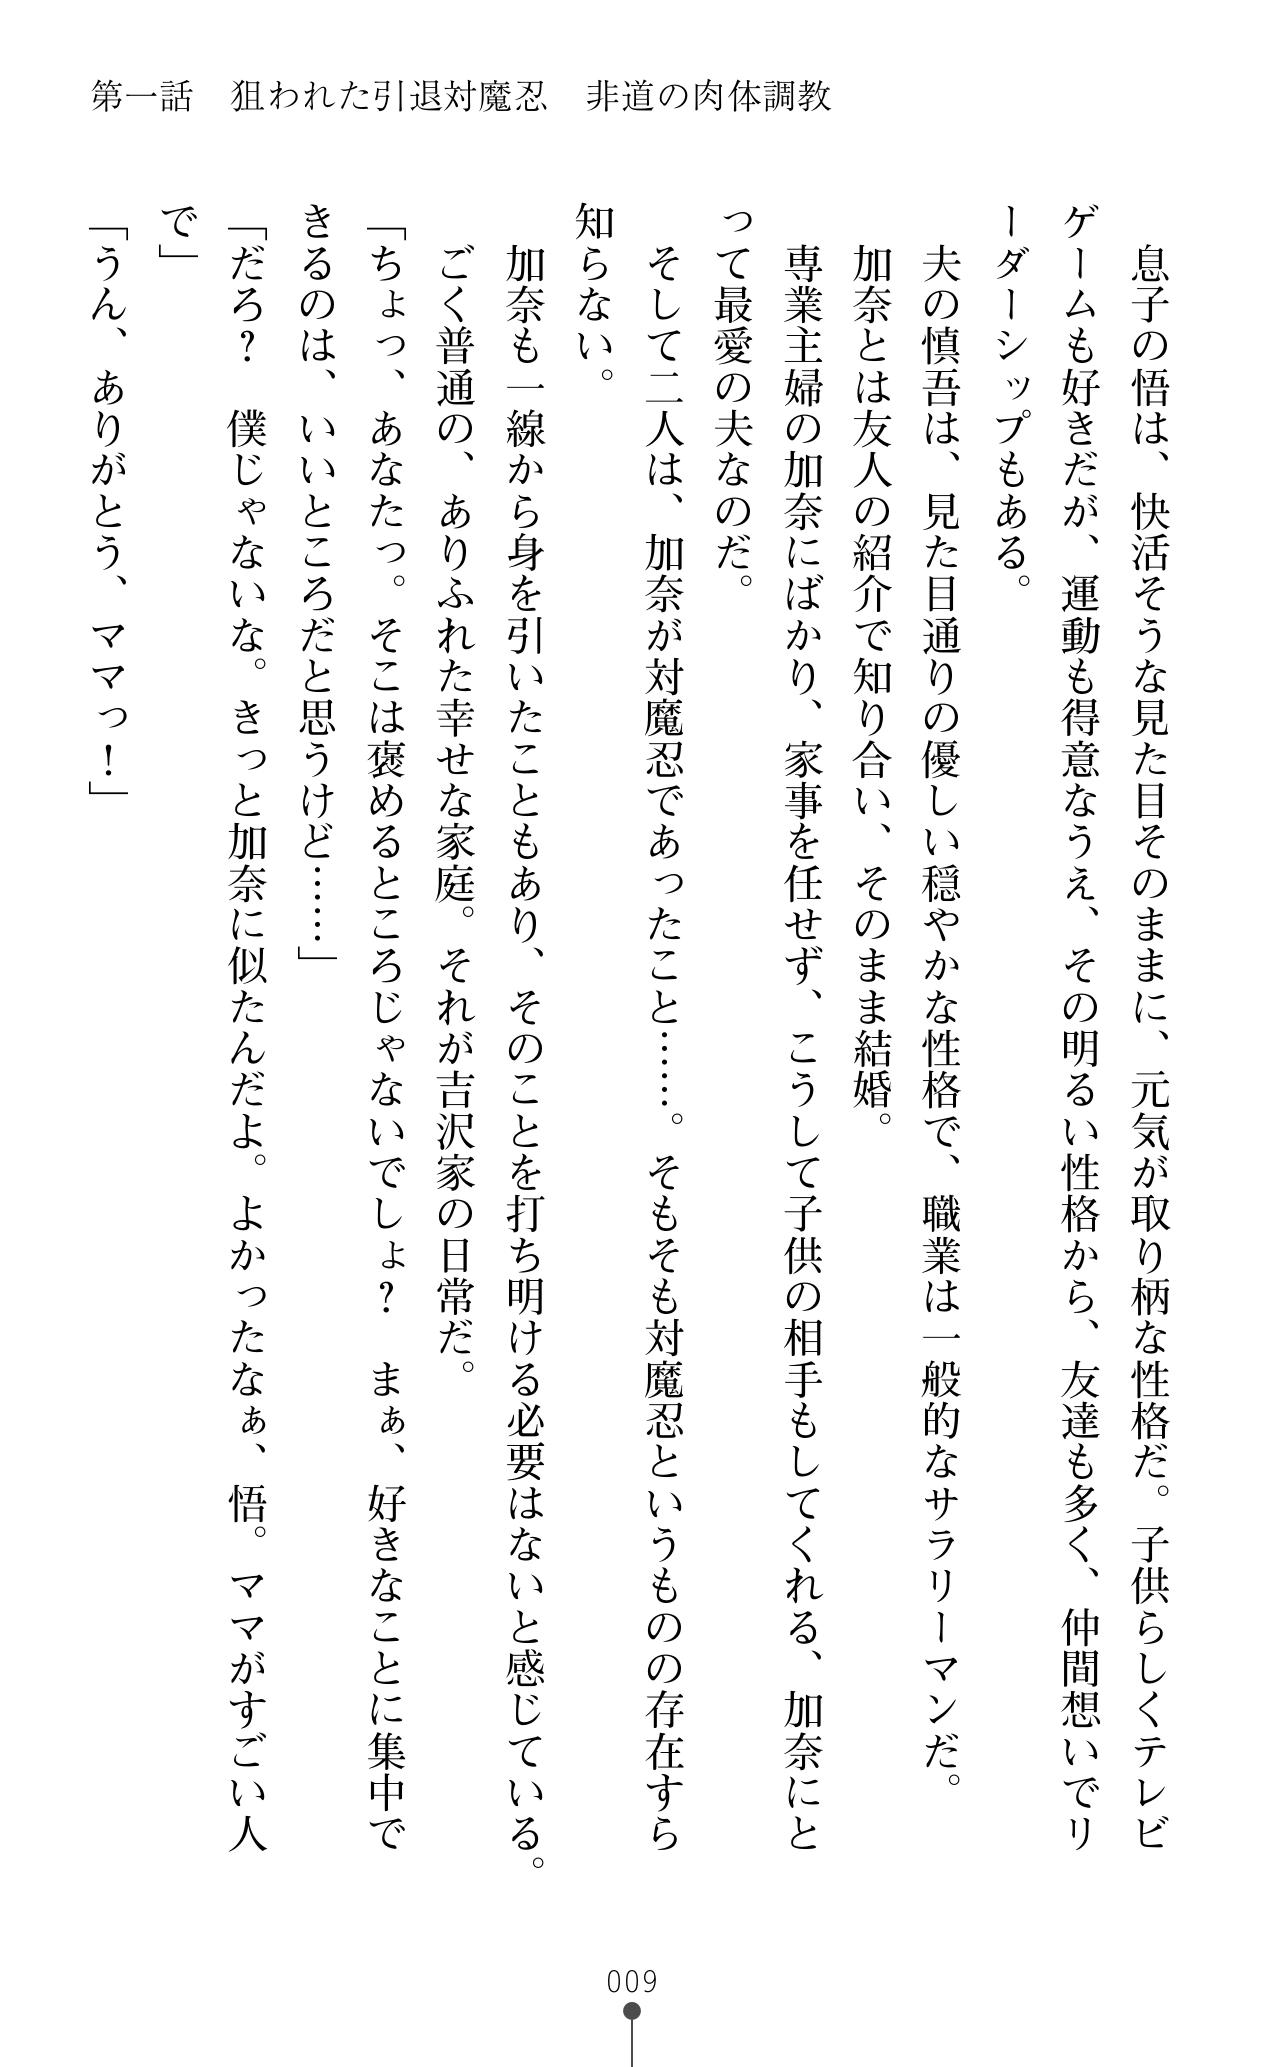 第一話　狙われた引退対魔忍　非道の肉体調教
　息子の悟は、快活そうな見た目そのままに、元気が取り柄な性格だ。子供らしくテレビ
ゲームも好きだが、運動も得意なうえ、その明るい性格から、友達も多く、仲間想いでリ
ーダーシップもある。
　夫の慎吾は、見た目通りの優しい穏やかな性格で、職業は一般的なサラリーマンだ。
　加奈とは友人の紹介で知り合い、そのまま結婚。
　専業主婦の加奈にばかり、家事を任せず、こうして子供の相手もしてくれる、加奈にと
って最愛の夫なのだ。
　そして二人は、加奈が対魔忍であったこと……。そもそも対魔忍というものの存在すら
知らない。
　加奈も一線から身を引いたこともあり、そのことを打ち明ける必要はないと感じている。
　ごく普通の、ありふれた幸せな家庭。それが吉沢家の日常だ。
「ちょっ、あなたっ。そこは褒めるところじゃないでしょ？　まぁ、好きなことに集中で
きるのは、いいところだと思うけど……」
「だろ？　僕じゃないな。きっと加奈に似たんだよ。よかったなぁ、悟。ママがすごい人
で」
「うん、ありがとう、ママっ！」
009